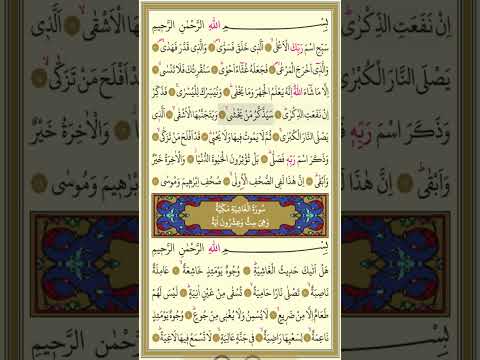 بِسْمِ اللّٰهِ الرَّحْمٰنِ الرَّحِيمِ
سَبِّحِ اسْمَ رَبِّكَ الْاَعْلٰىۙ ۝ اَلَّذ۪ي خَلَقَ فَسَوّٰىۙ ۝ وَالَّذ۪ي قَدَّرَ فَهَدٰىۙ ۝
وَالَّذ۪ٓي اَخْرَجَ الْمَرْعٰىۙ ۝ فَجَعَلَهُ غُثَٓاءً اَحْوٰىۜ ۝ سَنُقْرِئُكَ فَلَا تَنْسٰىۙ ۝
اِلَّا مَا شَٓاءَ اللّٰهُۜ اِنَّهُ يَعْلَمُ الْجَهْرَ وَمَا يَخْفٰىۜ ۝ وَنُيَسِّرُكَ لِلْيُسْرٰىۚ ۝ فَذَكِّرْ
اِنْ نَفَعَتِ الذِّكْرٰىۜ ۝ سَيَذَّكَّرُ مَنْ يَخْشٰىۙ ۝ وَيَتَجَنَّبُهَا الْاَشْقٰىۙ ۝ اَلَّذ۪ي
يَصْلَى النَّارَ الْكُبْرٰىۚ ۝ ثُمَّ لَا يَمُوتُ ف۪يهَا وَلَا يَحْيٰىۜ ۝ قَدْ اَفْلَحَ مَنْ تَزَكّٰىۙ ۝
وَذَكَرَ اسْمَ رَبِّه۪ فَصَلّٰىۜ ۝ بَلْ تُؤْثِرُونَ الْحَيٰوةَ الدُّنْيَاۘ ۝ وَالْاٰخِرَةُ خَيْرٌ
وَاَبْقٰىۜ ۝ اِنَّ هٰذَا لَفِي الصُّحُفِ الْاُولٰىۙ ۝ صُحُفِ اِبْرٰه۪يمَ وَمُوسٰى ۝
سُورَةُ الْغَاشِيَةِ مَكِّيَّةٌ
وَهِيَ سِتٌّ وَعِشْرُونَ اٰيَةً
بِسْمِ اللّٰهِ الرَّحْمٰنِ الرَّحِيمِ
هَلْ اَتٰيكَ حَد۪يثُ الْغَاشِيَةِۜ ۝ وُجُوهٌ يَوْمَئِذٍ خَاشِعَةٌۙ ۝ عَامِلَةٌ
نَاصِبَةٌۙ ۝ تَصْلٰى نَارًا حَامِيَةًۙ ۝ تُسْقٰى مِنْ عَيْنٍ اٰنِيَةٍۜ ۝ لَيْسَ لَهُمْ
طَعَامٌ اِلَّا مِنْ ضَر۪يعٍۙ ۝ لَا يُسْمِنُ وَلَا يُغْن۪ي مِنْ جُوعٍۜ ۝ وُجُوهٌ يَوْمَئِذٍ
نَاعِمَةٌۙ ۝ لِسَعْيِهَا رَاضِيَةٌۙ ۝ ف۪ي جَنَّةٍ عَالِيَةٍۙ ۝ لَا تَسْمَعُ ف۪يهَا لَاغِيَةًۜ ۝